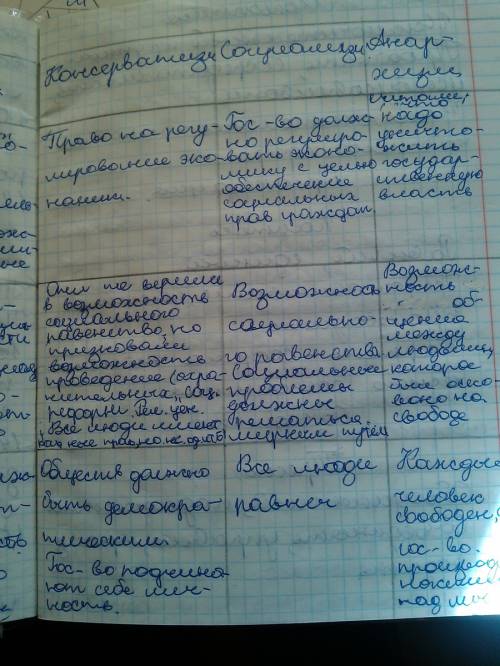 Консерватизм
Социализм
Анар-
хизм
Право на регу-
лирование эко-
номики.
Гос-во долж-
но регулиро-
вать эконо-
мику с целью
обеспечение
социальных
прав граждан
считали, что
надо
уничто-
жить
государ-
ственную
власть
Они не верили
в возможность
социального
равенство, но
признавали
возможность
проведение (огра-
ничительных) соц.
реформ. Рел. цен.
Все люди имеют
равные права, но не
Возможность
социально-
го равенства
Социальные
проблемы
должны
решаться
мирным путём
Возмож-
ность
об-
щения
между
людьми,
которое
было осно
вано на
свободе
Общество должно
быть демокра-
тическим.
Гос-во подчиня-
ют себе лич-
ность.
Все люди
равны
Каждый
человек
свободен,
гос-во.
произвол
насилие
над